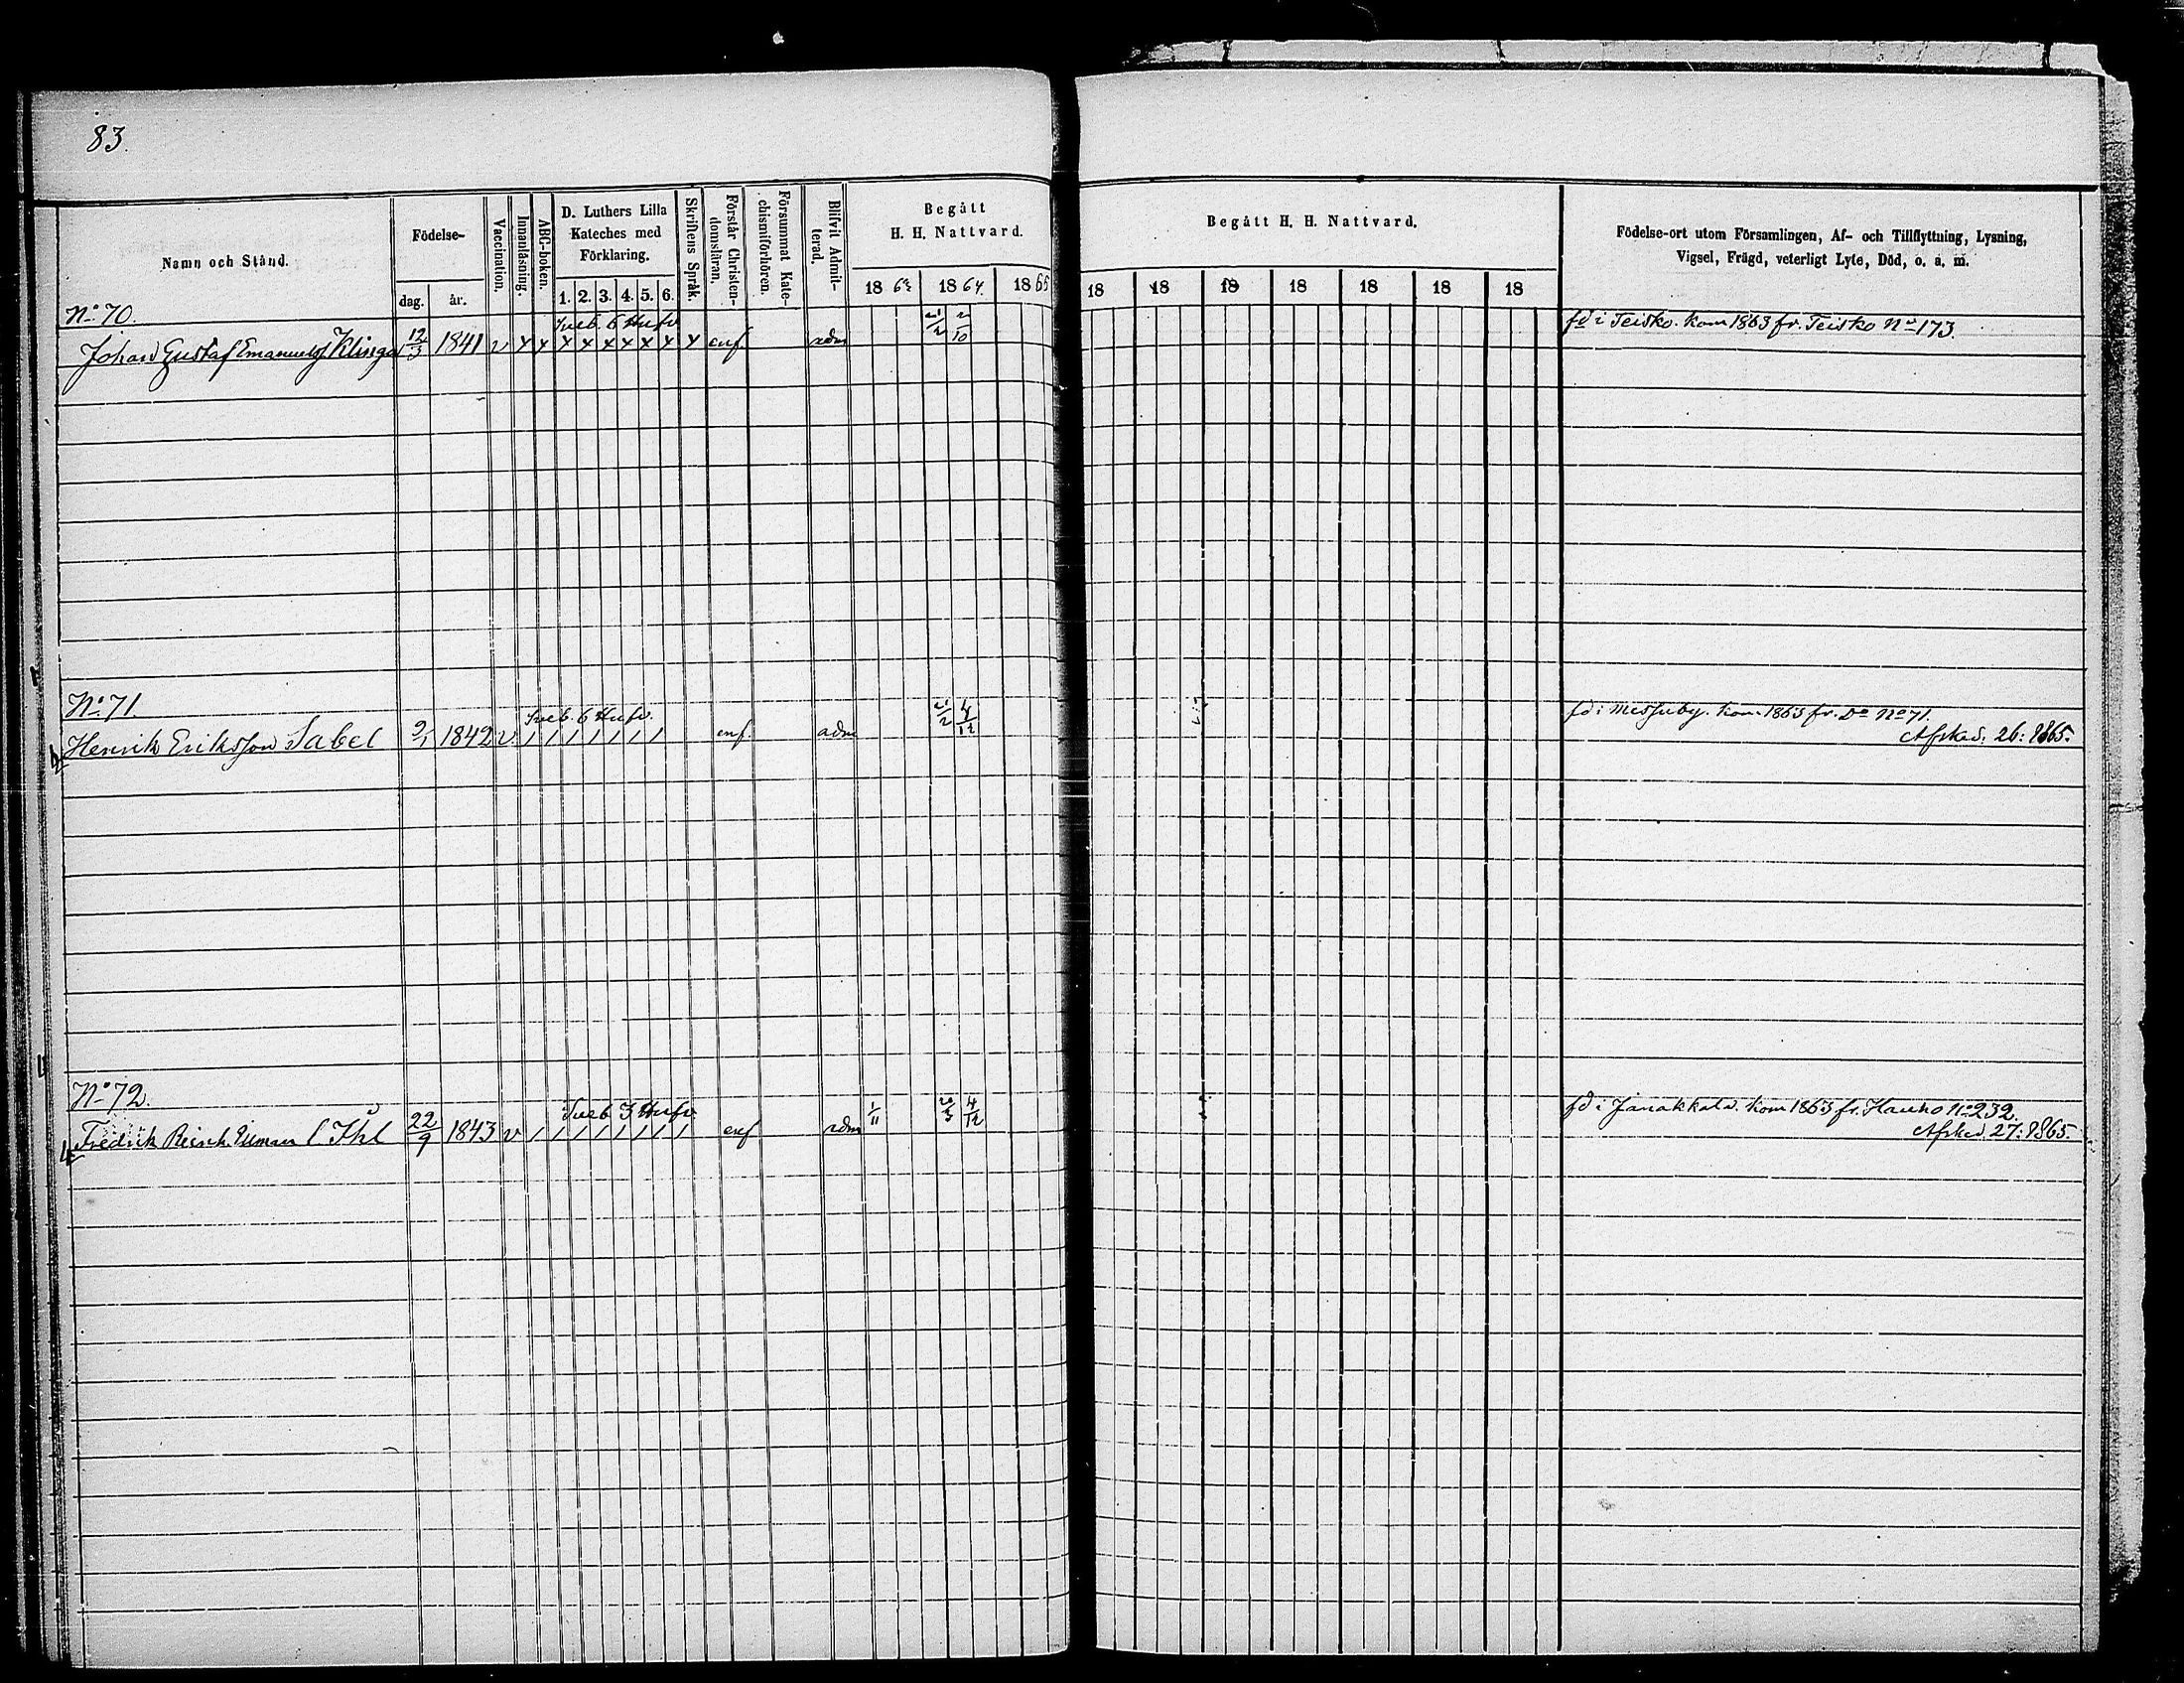 83.
Namn och Stånd.
Födelse-
dag.
år.
Vaccination.
Innanläsning.
ABC-boken.
D. Luthers Lilla
Kateches med
Förklaring.
1. 2. 3. 4. 5. 6.
Skriftens Språk.
Förstår Christen-
domsläran.
Försummat Kate-
chismiförhören.
Blifvit Admit-
terad.
Begått
H. H. Nattvard.
18 64. 1865
Begått H. H. Nattvard.
18 18 18 18 18 18 18
Födelse-ort utom Församlingen, Af- och Tillflyttning, Lysning,
Vigsel, Frägd, veterligt Lyte, Död, o. a. m.
No 70.
Sveb. 6 Hufv
fd i Teisko. Kom 1863 fr. Teisko No 173.
Johan Gustaf Klinga 12/3 1841 v x x x x x x x x x enf adm 2/10
No 71.
Sveb. 6 Hufv.
fd i Messuby. Kom 1863 fr. Do No 71.
Henrik Eriksson Sabel 1842 v. / / / / / / / enf adm 4/12
Afsked: 26: 1865.
No 72.
Sveb 3 Hufv.
fd i Janakkala. Kom 1863 fr. Hauho No 232.
Fredrik 22/9 1843 v / / / / / / / / enf adm 1/11 4/12
Afsked 27: 1865.